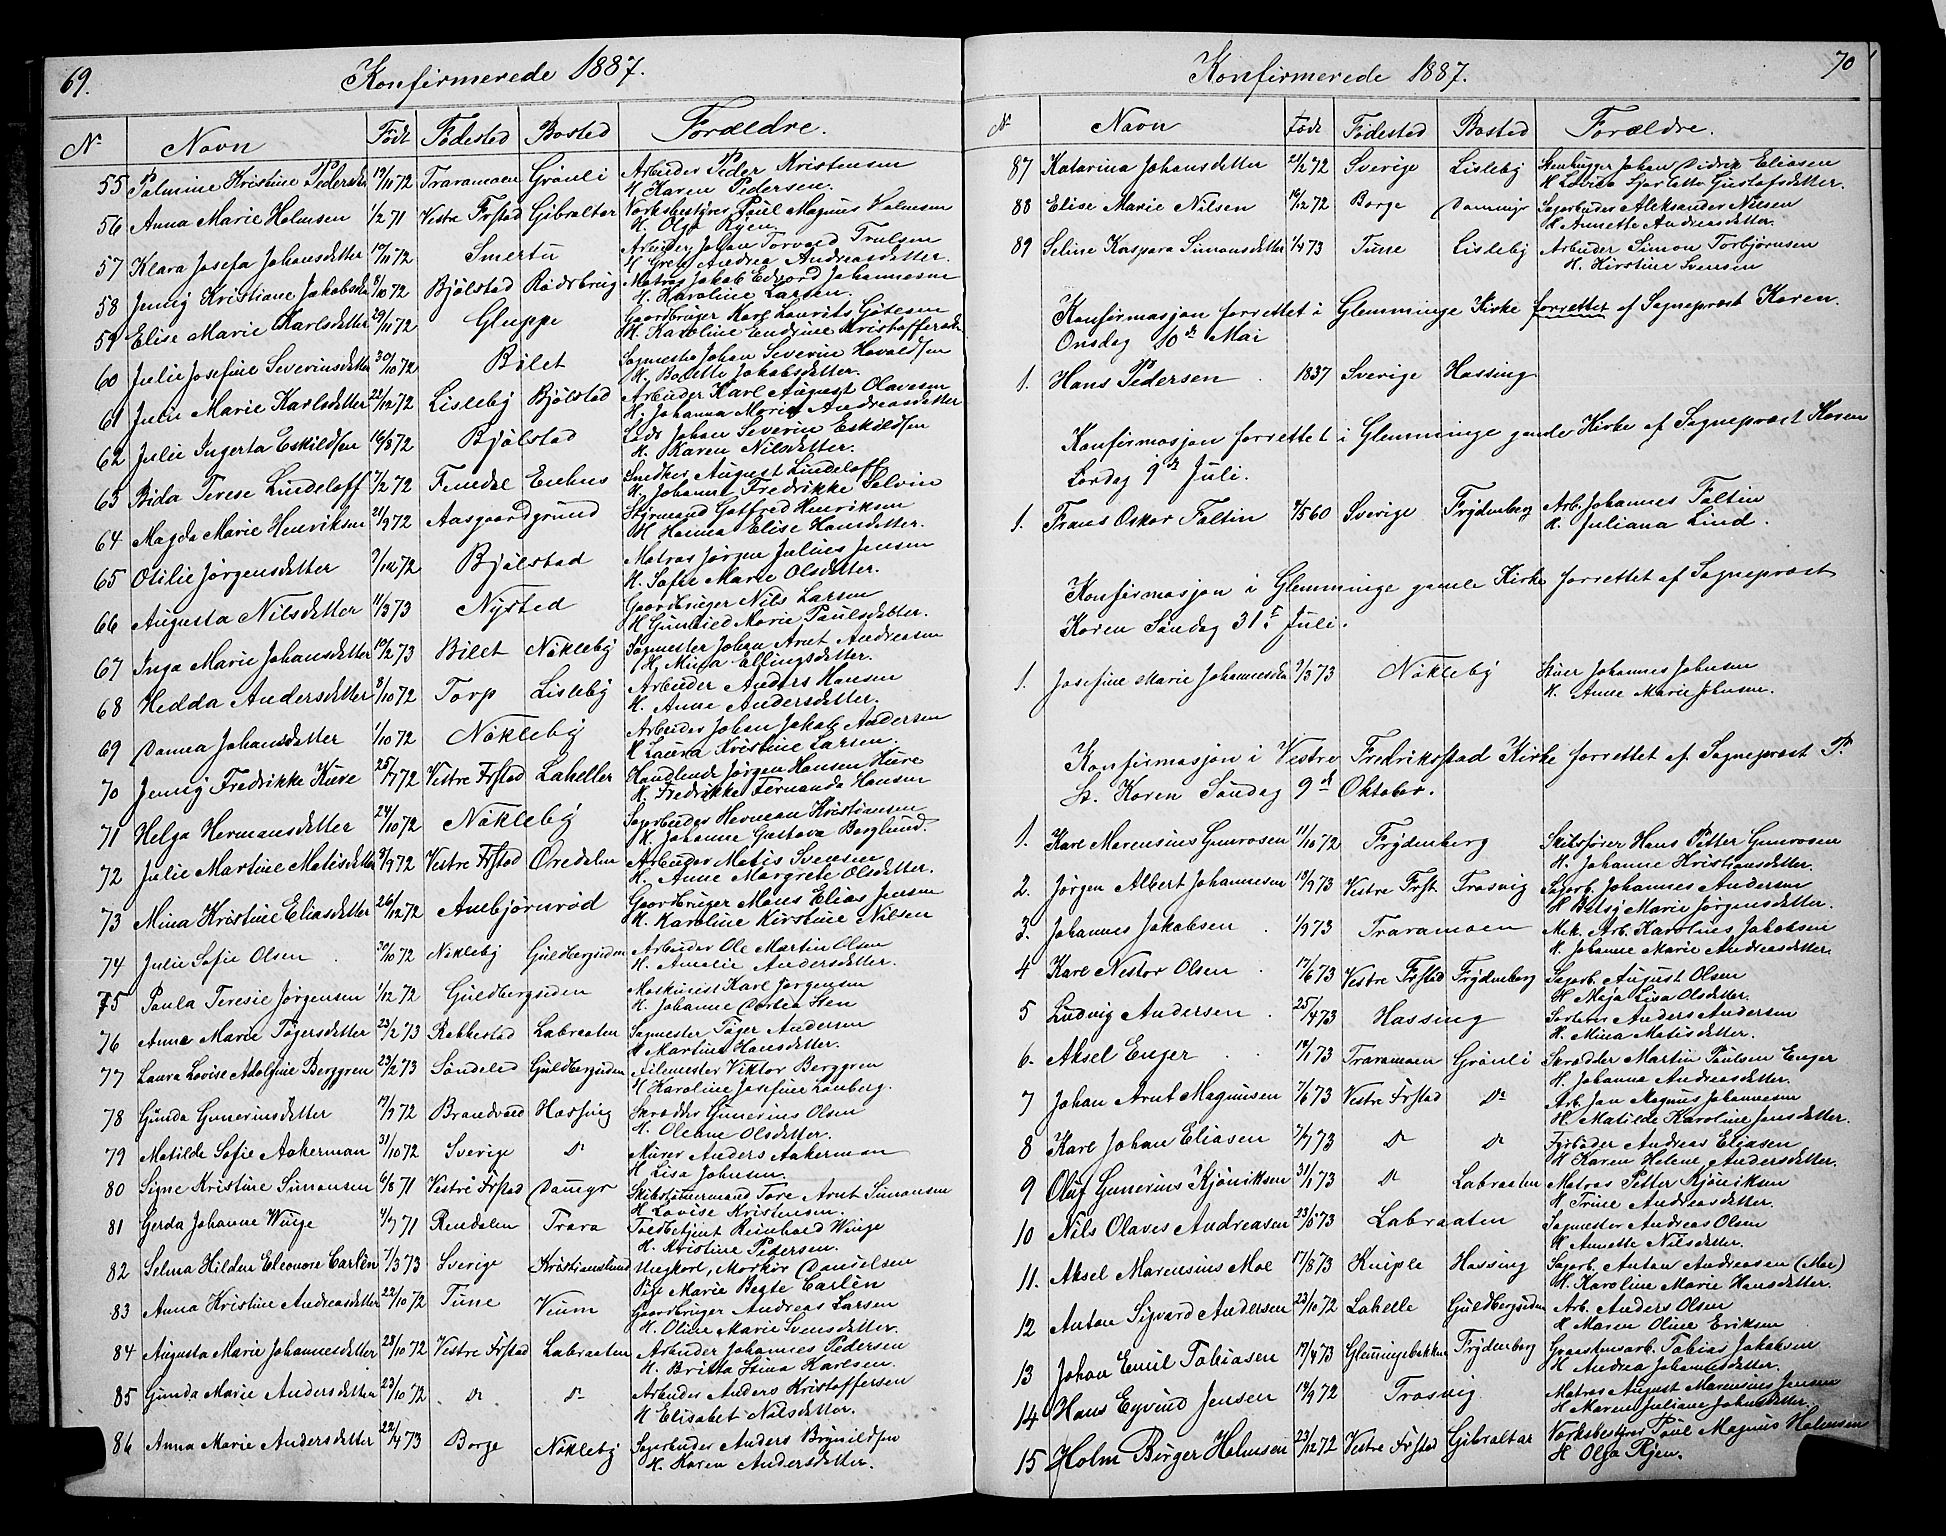 69.
Konfirmerede 1887.
No Navn Født Fødested Bosted Forældre.
55 Palmine Kristine Pedersdtr 19/10 72 Traramoen Grönli Arbeider Peder Kristensen
H. Karen Pedersen.
56 Anna Marie Holmsen 1/2 71 Vestre Frstad Gibraltar Værksbestyrer Paul Magnus Holmsen
H. Olga Rÿen.
57 Klara Josefa Johansdetter 17/11 72 Smertu Arbeider Johan Torvald Trulsen
H. Grete Andrea Andreasdetter.
58 Jenny Kristiane Jakobsda 8/10 72 Bjölstad Rödsbrug Matros Jakob Edvard Johannesen
H. Karoline Larsen.
59 Elise Marie Karlsdetter 29/11 72 Gluppe Gaardbruger Karl Laurits Götesen
H. Karoline Endrine Kristoffersdtr
60 Julie Josefine Severinsdetter 30/10 72 Bilet Sagmester Johan Severin Havaldsen
H. Bolette Jakobsdetter.
61 Julie Marie Karlsdetter 22/12 72 Lisleby Bjölstad Arbeider Karl August Olavesen
H. Johanna Maria Andreasdetter
62 Julie Ingerta Eskildsen 16/8 72 Bjölstad Lods Johan Severin Eskildsen
H. Karen Nilsdetter.
63 Bida Terese Lindeloff 7/2 72 Femdal Enhus Snedker August Lindeloff
H. Johanne Fredrikke Selvin
64 Magda Marie Henriksen 21/9 72 Aasgaardgrund Stÿrmand Gotfred Henriksen
H. Hanna Elise Hansdetter.
65 Otilie Jørgensdetter 9/12 72 Bjölstad Matros Jørgen Julius Jensen
H. Sofie Marie Olsdetter.
66 Augusta Nilsdetter 11/3 73 Nÿsted Gaardbruger Nils Larsen
H. Gunild Marie Paulsdetter.
67 Inga Marie Johansdetter 19/2 73 Bilet Nökleby Sagmester Johan Arnt Andreasen
H. Mina Ellingsdetter.
68 Hedda Andersdetter 8/10 72 Torp Lisleby Arbeider Anders Hansen
H. Anne Andersdetter.
69 Danna Johansdetter 1/10 72 Nökleby Arbeider Johan Jakob Andersen
H. Laura Kristine Larsen.
70 Jenny Fredrikke Kure 25/7 72 Vestre Frstad Laheller Handlende Jørgen Hansen Kure
H. Fredrikke Fernanda Hansen
71 Helga Hermansdetter 24/10 72 Nökleby Sagarbeider Herman Kristiansen
H. Johanne Gustava Berglund.
72 Julie Martine Matisdetter 9/9 72 Vestre Frstad Oredalen Arbeider Matis Svensen
H. Anne Margrete Olsdetter.
73 Mina Kristine Eliasdetter 26/12 72 Ambjörnröd Gaardbruger Mons Elias Jensen
H. Karoline Kirstine Nilsen
74 Julie Sofie Olsen 30/10 72 Nökleby Guldbergsiden Arbeider Ole Martin Olsen
H. Amalie Andersdetter.
75 Paula Teresie Jørgensen 1/12 72 Guldbergsiden Maskinist Karl Jørgensen
H. Johanne Dortea Sten
76 Anne Marie Tögersdetter 23/2 73 Rakkestad Labraaten Sagmester Töger Andersen
H. Martine Hansdetter.
77 Laura Lovise Adolfine Berggren 23/2 73 Söndeled Guldbergsiden Filemester Viktor Berggren
H. Karoline Josefine Lönberg.
78 Gunda Gunerinsdetter 19/9 72 Brandvold Hassing Skrædder Gunerius Olsen
H. Oleane Olsdetter.
79 Matilde Sofie Aakerman 31/10 72 Sverige Do Murer Anders Aakerman
H. Lisa Johnsen
80 Signe Kristine Simonsen 6/8 71 Vestre Frstad Damyr Skibstömmermand Tore Arnt Simonsen
H. Lovise Kristensen.
81 Gerda Johanne Winge 4/7 71 Rendalen Trara Toldbetjent Reinhold Winge
H. Kristine Pedersen.
82 Selma Hildur Eleonore Carlèn 7/3 73 Sverige Kristianslund Ungkarl, Markör Danielsen
Pige Marie Beate Carlèn
83 Anna Kristine Andreasdetter 22/10 72 Tune Veum Gaardbruger Andreas Larsen
H. Oline Marie Svensdetter.
84 Augusta Marie Johannesdetter 28/10 72 Vestre Frstad Labraaten Arbeider Johannes Pedersen
H. Britta Stina Karlsen.
85 Gunda Marie Andersdetter 23/10 72 Do Do Arbeider Anders Kristoffersen
H. Elisabet Nilsdetter.
86 Anna Marie Andersdetter 22/4 73 Borge Nökleby Sagarbeider Anders Brynildsen
H. Karen Andersdetter.
70
Konfirmerede 1887.
No Navn Født Fødested Bosted Forældre.
87 Katarina Johansdetter 21/2 72 Sverige Lisleby Stenhugger Johan Didrik Eliasen
H. Lovisa Sjarlatta Gustafsdetter.
88 Elise Marie Nilsen 16/12 72 Borge Dammyr Sagarbeider Aleksander Nilsen
H. Annette Andreasdetter.
89 Seline Kaspara Simonsdetter 1/4 73 Tune Lisleby Arbeider Simon Torbjørnsen
H. Kirstine Svensen
Konfirmasjon forrettet i Glemminge Kirke forrettet af Sognepræst Koren.
Onsdag 10de Mai
1. Hans Pedersen 1837 Sverige Hassing
Konfirmasjon forrettet i Glemminge gamle Kirke af Sognepræst Koren
Lördag 9de Juli.
1. Frans Oskar Faltin 4/5 60 Sverige Frÿdenberg Arb. Johannes Faltin
H. Juliana Lind.
Konfirmasjon i Glemminge gamle Kirke forrettet af Sognepræst
Koren Söndag 31te Juli.
1. Josefine Marie Johannesda 9/3 73 Nökleby Stuer Johannes Johnsen
H. Anne Marie Johnsen.
Konfirmasjon i Vestre Fredrikstad Kirke forrettet af Sognepræst P.
St. Koren Söndag 9de Oktober.
1. Karl Marensius Gunrosen 11/10 72 Frÿdenberg Skibsfører Hans Petter Gunrosen
H. Johanne Kristiansdetter.
2. Jörgen Albert Johannesen 13/9 73 Vestre Frst Trosvig Sagarb. Johannes Andersen
H. Betsÿ Marie Jørgensdetter.
3. Johannes Jakobsen 1/9 73 Traramoen Mek. Arb. Karolius Jakobsen
H. Johanne Marie Andreasdetter.
4 Karl Nestor Olsen 17/6 73 Vestre Frstad Frÿdenberg Sagarb. August Olsen
H. Maja Lisa Olsdetter.
5 Ludvig Andersen 25/4 73 Hassing Sorterer Anders Andersen
H. Mina Matisdetter.
6. Aksel Enger 14/1 73 Traramoen Grönli Skrædder Martin Paulsen Enger
H. Johanna Andreasdetter.
7 Johan Arnt Magnusen 7/6 73 Vestre Frstad Do Arb. Jan Magnus Johannesen
H. Matilde Karoline Jensdetter.
8 Karl Johan Eliasen 7/7 73 Do Do Fyrbøder Andreas Eliasen
H. Karen Helene Andersdetter.
9 Oluf Gunerius Kjöniksen 31/1 73 Do Labraaten Matros Petter Kjöniksen
H. Trine Andreasdetter.
10 Nils Olaves Andreasen 23/5 73 Labraaten Sagmester Andreas Olsen
H. Annette Nilsdetter.
11. Aksel Marensius Moe 17/8 73 Kniple Hassing Sagarb. Anton Andreasen (Moe)
H. Karoline Marie Hansdetter.
12 Anton Sigvard Andersen 23/10 72 Lahelle Guldbergsiden Arb. Anders Olsen
H. Maren Oline Eriksen
13 Johan Emil Tobiasen 17/4 73 Glemingebakken Frÿdenberg Graastensarb. Tobias Jakobsen
H. Andrea Johannesdetter.
14 Hans Eyvind Jensen 14/9 72 Trosvig. Matros August Marensius Jensen
H. Maren Juliane Johnsdetter.
15 Holm Birger Holmsen 23/12 72 Vestre Frstad Gibraltar Værksbestyrer Paul Magnus Holmsen
H. Olga Rÿen.